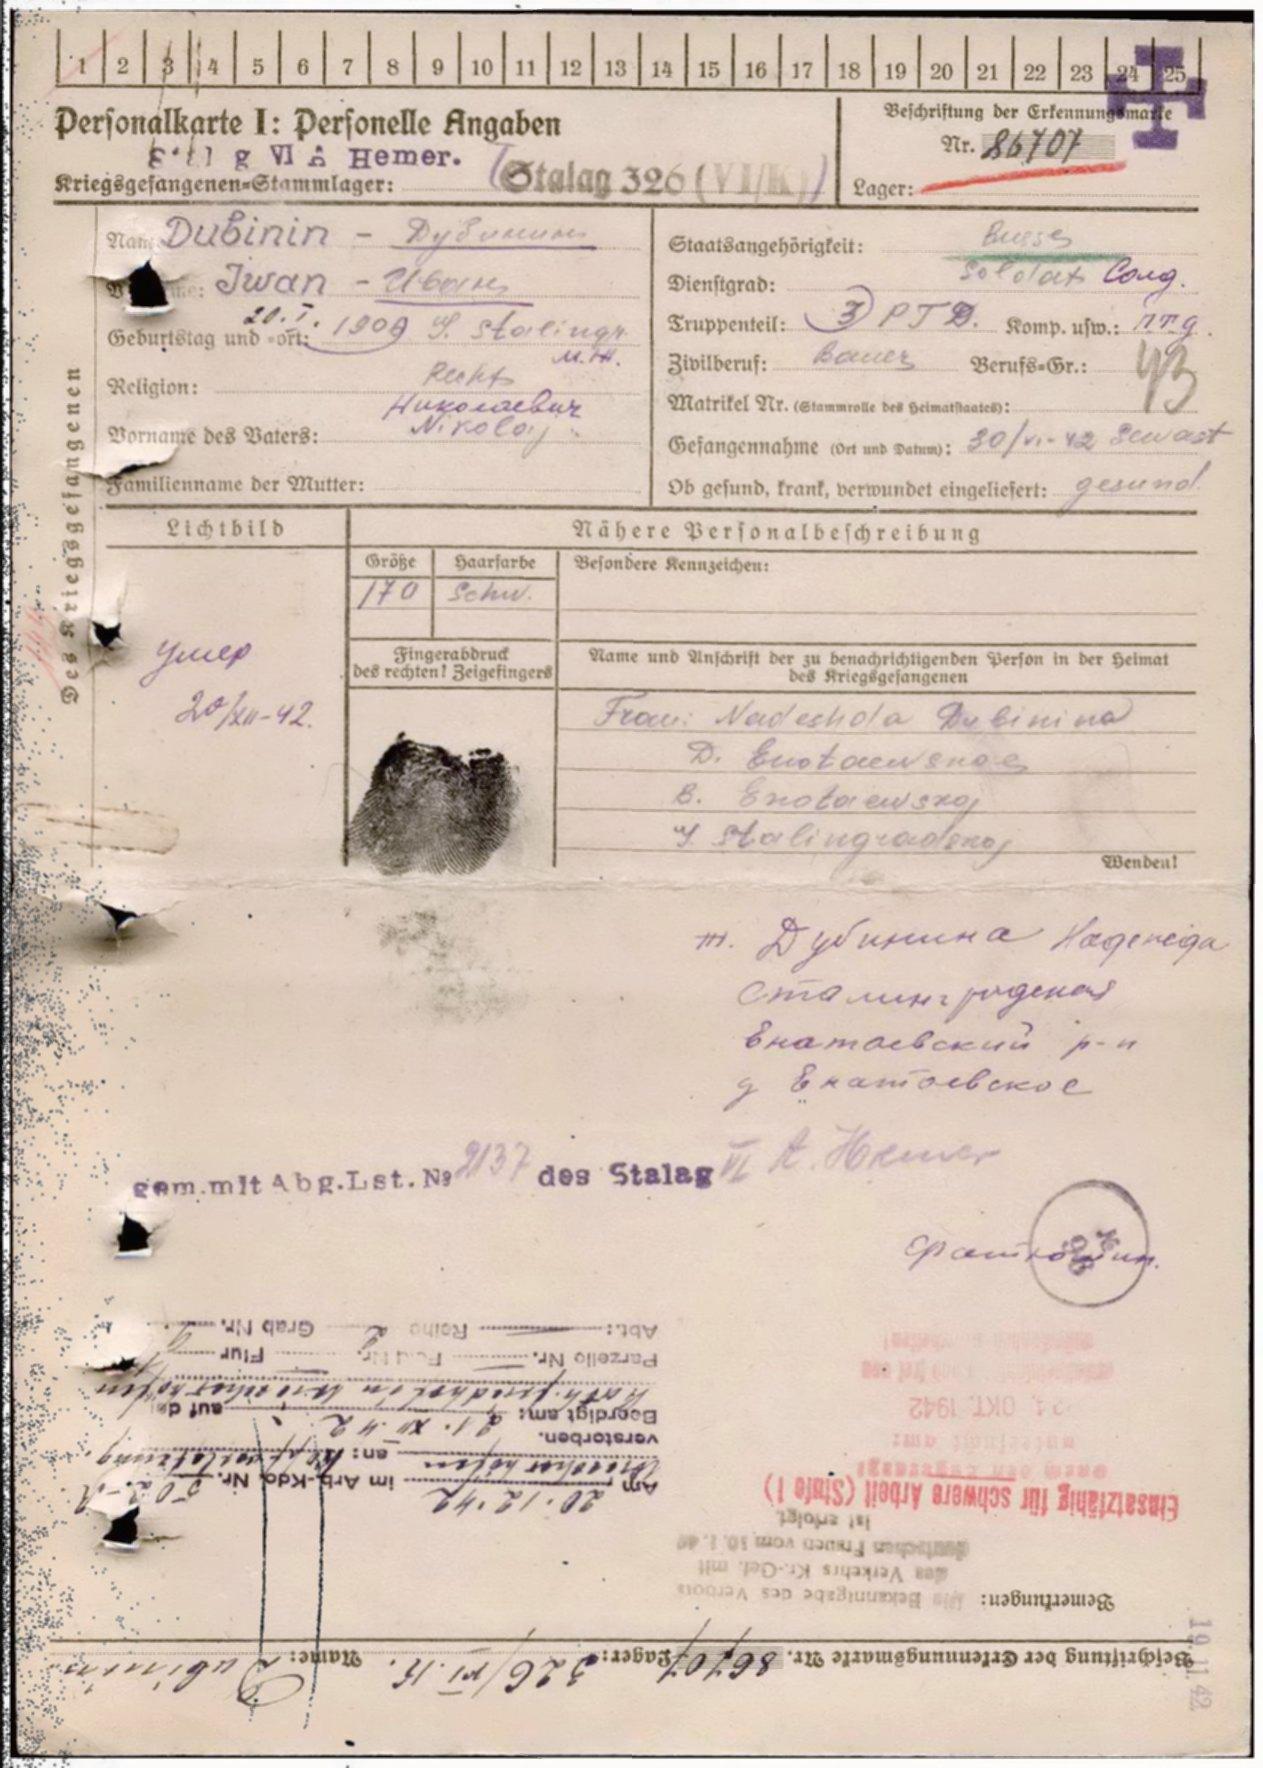 1 2 3 4 5 6 7 8 9 10 11 12 13 14 15 16 17 18 19 20 21 22 23 24 25
Personalkarte I: Personelle Angaben
Beschriftung der Erkennungsmarke
VI A Hemer.
Nr. 86707
Kriegsgefangenen-Stammlager: Stalag 326 (VI/K)
Lager:
Des Kriegsgefangenen
Name: Dubinin – Дубинин
Iwan – Иван
20.I.
Geburtstag und -ort: 1909 Stalingr.
Religion:
Николаевич
Vorname des Vaters: Nikolaj
Familienname der Mutter:
Staatsangehörigkeit: Russe
Dienstgrad: Soldat Солд.
Truppenteil: 3 PTD. Komp. usw.: ПТД.
Zivilberuf: Bauer Berufs-Gr.: 43
Matrikel Nr. (Stammrolle des Heimatstaates):
Gefangennahme (Ort und Datum): 30/VI-42 Sewast
Ob gesund, krank, verwundet eingeliefert: gesund
Lichtbild
Nähere Personalbeschreibung
Größe Haarfarbe Besondere Kennzeichen:
170 schw.
умер
20/XII-42.
Fingerabdruck
des rechten! Zeigefingers
Name und Anschrift der zu benachrichtigenden Person in der Heimat
des Kriegsgefangenen
Frau: Nadeshda Dubinina
D. Enotaewskoe
Enotaewskoj
Stalingradskoj
Wenden!
Дубинина Надежда
Сталинградская
Енатаевский р-н
д Енатаевское
gem. mit Abg. Lst. № 2137 des Stalag VI A. Hemer
Abt.: Reihe 2 Grab Nr. 9.
Parzelle Nr. Feld Nr. Flur
Beerdigt am: 21. XII 42 auf
verstorben.
an: Kopfverletzung.
im Arb.-Kdo. Nr. 502-R
Am 20.12.42
21. OKT. 1942
Einsatzfähig für schwere Arbeit (Stufe I)
ist erfolgt.
deutschen Frauen vom 10.1.40
des Verkehrs Kr.-Gef. mit
Die Bekanntgabe des Verbots
Bemerkungen:
Beschriftung der Erkennungsmarke Nr. 86707 Lager: 326/VI. K. Name: Dubinin
10.11.42